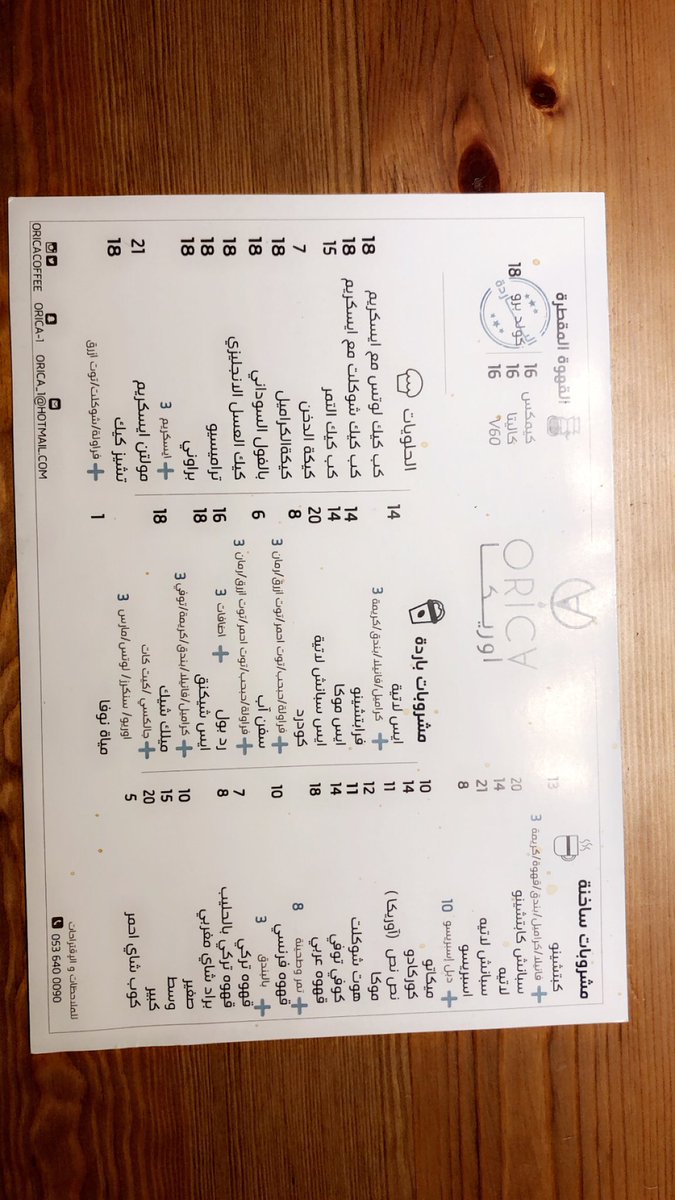 ORICA
أوريكا
مشروبات ساخنة
كبتشينو 13
+ فانيلا/كراميل/بندق/قهوة/كريمة 3
سبانش كابتشينو 20
لاتيه 14
سبانش لاتيه 21
اسبريسو 8
+ دبل إسبريسو 10
ميكاتو 10
كورتادو 14
نص نص (أوريكا) 11
موكا 12
هوت شوكلت 11
كوفي توفي 14
قهوه عربي 18
+ تمر وطحينة 8
قهوه فرنسي 10
+ بالبندق 3
قهوه تركي 7
قهوه تركي بالحليب 8
براد شاي مغربي
صغير 10
وسط 15
كبير 20
كوب شاي احمر 5
مشروبات باردة
ايس لاتية 14
+ كراميل/فانيلا/بندق/كريمة 3
فرابتشينو 14
ايس موكا 14
ايس سبانش لاتية 20
كودرد 8
+ فراولة/حبحب/توت احمر/توت ازرق/رمان 3
سفن آب 6
+ فراولة/حبحب/توت احمر/توت ازرق/رمان 3
رد بول 16
+ اضافات 3
ايس شيكنق 18
+ كراميل/فانيلا/بندق/كريمة/توفي 3
ميلك شيك 18
+ جالكسي/كيت كات
اوريو/سنكرز/لوتس/مارس 3
مياة نوفا 1
القهوة المقطرة
كيمكس 16
كاليتا 16
V60 16
كولد برو 18
الباردة
الحلويات
كب كيك لوتس مع ايسكريم 18
كب كيك شوكلت مع ايسكريم 18
كب كيك التمر 15
كيكة الدخن 7
كيكةالكراميل 18
بالفول السوداني 18
كيك العسل الانجليزي 18
تراميسيو 18
براوني 18
+ ايسكريم 3
مولتن ايسكريم 21
تشيز كيك 18
+ فراولة/شوكلت/توت ازرق
ORICACOFFEE ORICA-1 ORICA_1@HOTMAIL.COM
للملاحظات و الإقتراحات
053 640 0090